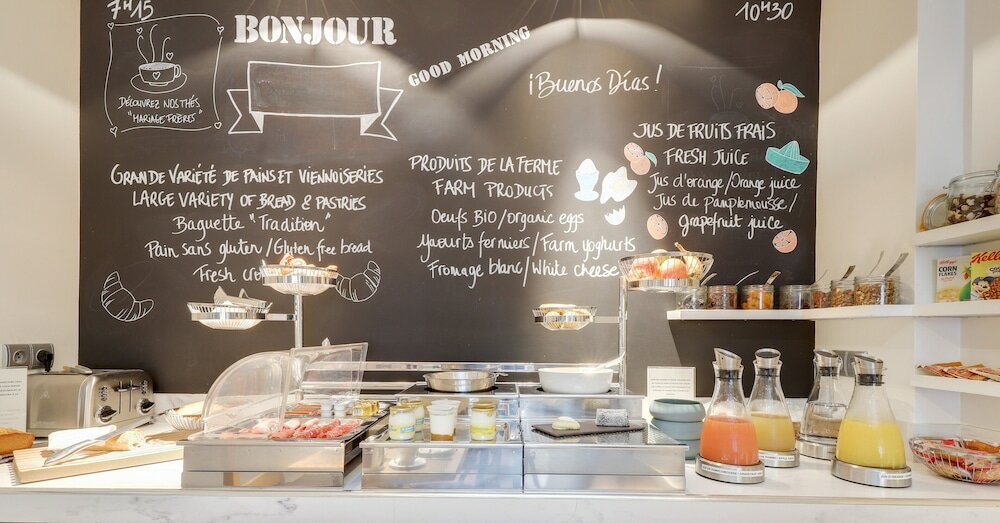 7H15
BONJOUR
GOOD MORNING
10H30
¡Buenos Días!
DÉCOUVREZ NOS THÉS
"MARIAGE FRÈRES"
GRANDE VARIÉTÉ DE PAINS ET VIENNOISERIES
LARGE VARIETY OF BREAD & PASTRIES
Baguette "Tradition"
Pain sans gluten/Gluten free bread
Fresh
PRODUITS DE LA FERME
FARM PRODUCTS
Oeufs Bio/organic eggs
Yaourts fermiers/Farm yoghurts
Fromage blanc/White cheese
JUS DE FRUITS FRAIS
FRESH JUICE
Jus d'orange/Orange juice
Jus de pamplemousse/
grapefruit juice
Kellogg's
CORN
FLAKES
Kello